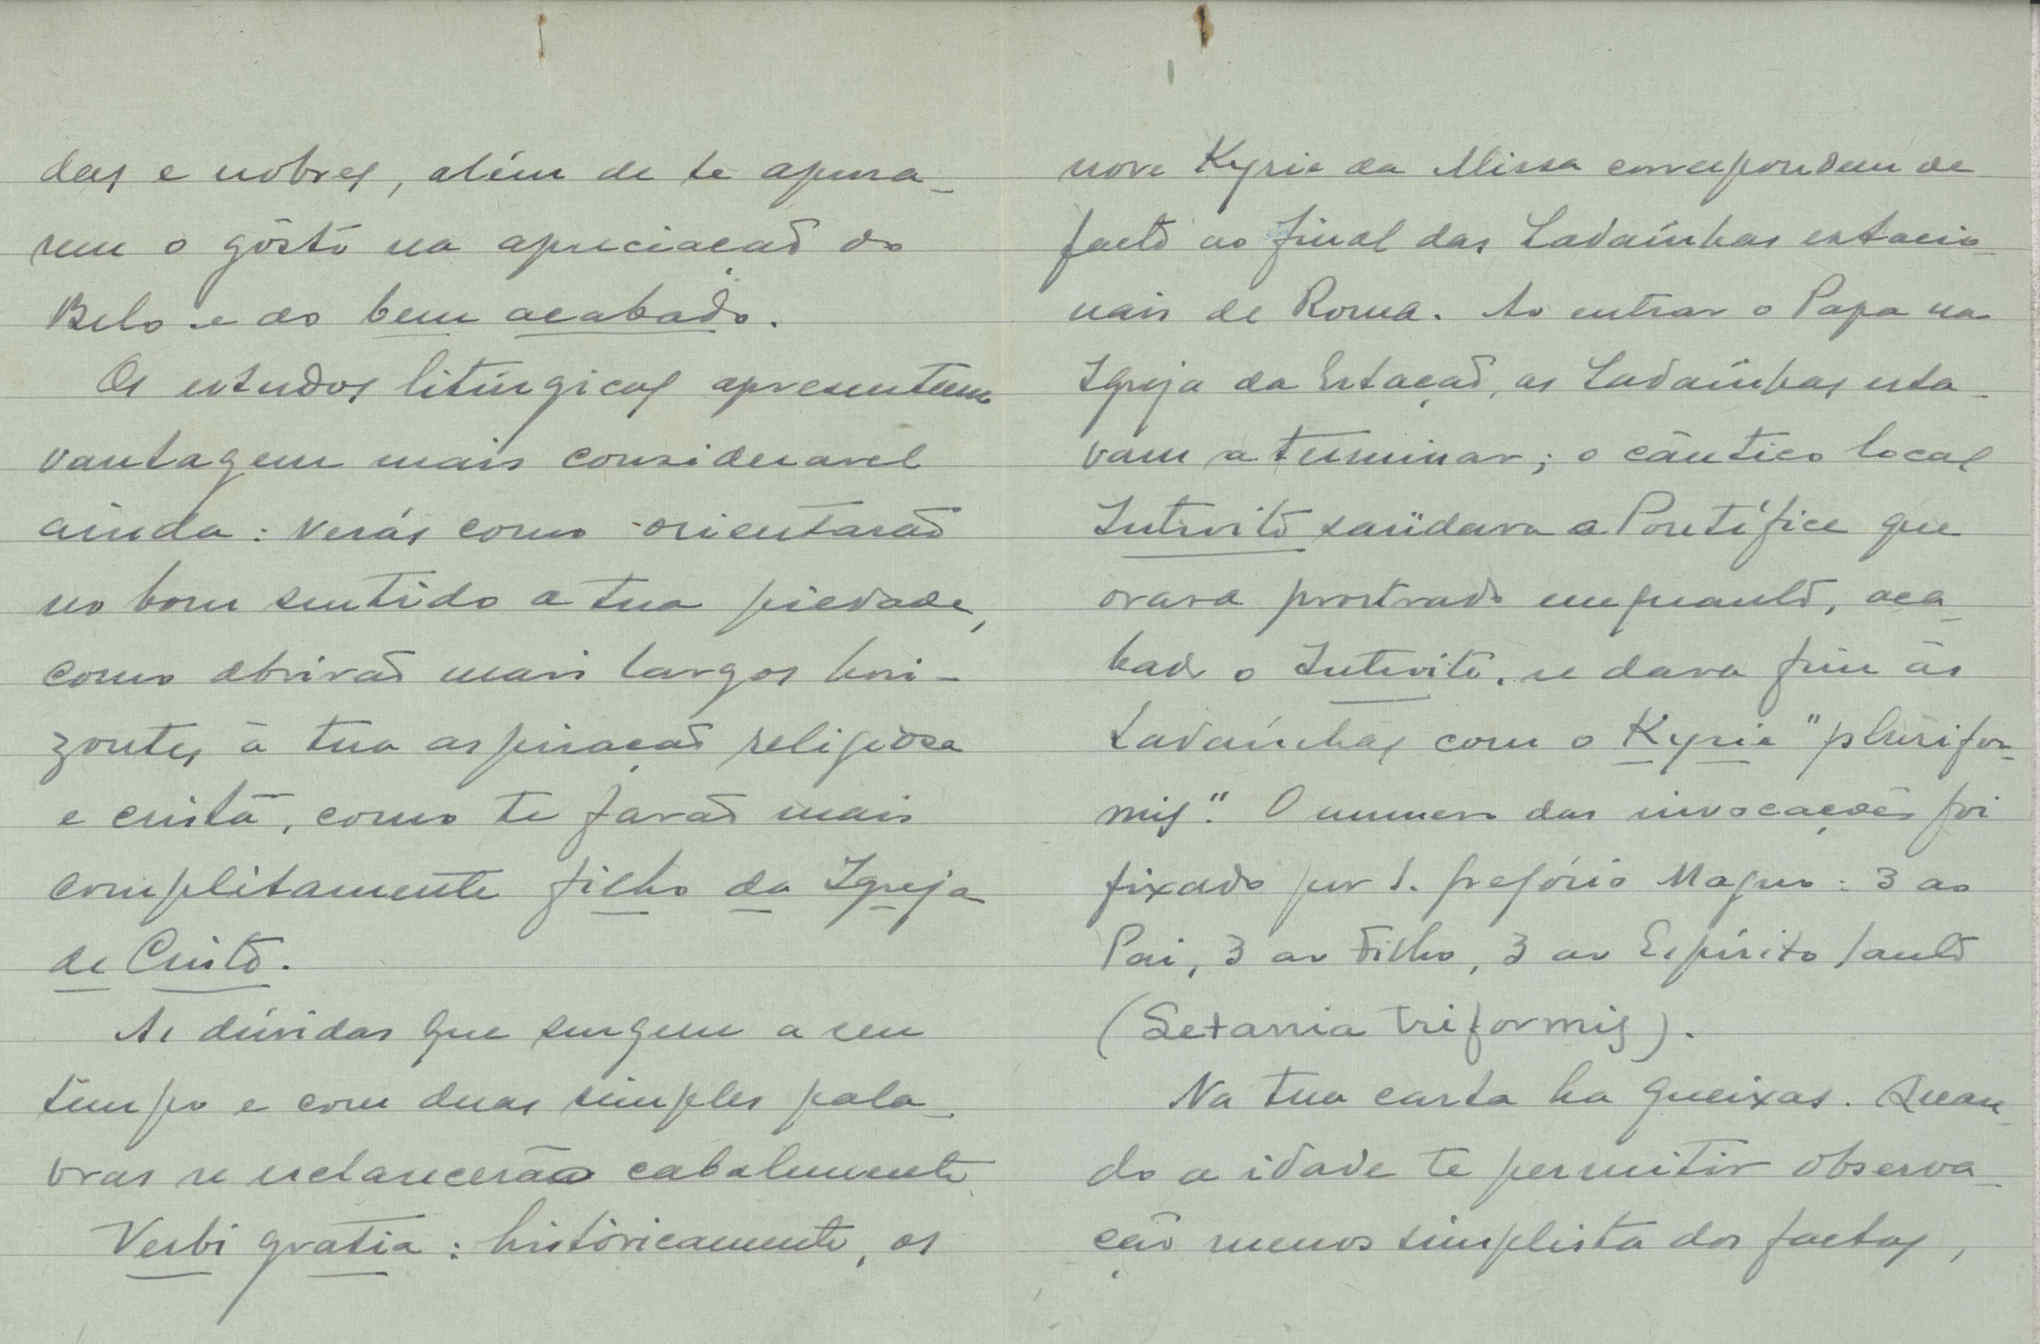 das e nobres, além de te apura-
rem o gôsto na apreciação do
Belo e do bem acabado.
Os estudos litúrgicos apresentam
vantagem mais consideravel
ainda: verás como orientarão
no bom sentido a tua piedade,
como abrirão mais largos hori-
zontes à tua aspiração religiosa
e cristã, como te farão mais
complitamente filho da Igreja
de Cristo.
As dúvidas que surgem a seu
tempo e com duas simples pala-
vras se esclarecerão cabalmente
Verbi gratia: històricamente, os
nove Kyrie da Missa correspondem de
facto ao final das Ladaínhas estacio-
nais de Roma. Ao entrar o Papa na
Igreja da Estação, as Ladaínhas esta-
vam a terminar; o cântico local
Introito saüdava o Pontífice que
orava prostrado emquanto, aca-
bado o Introito, se dava fim às
Ladaínhas com o Kyrie "plurifor-
mis". O numero das invocações foi
fixado por S. Gregório Magno: 3 ao
Pai, 3 ao Filho, 3 ao Espírito Santo
(Letania triformis).
Na tua carta ha queixas. Quan-
do a idade te permitir observa-
ção menos simplista dos factos,